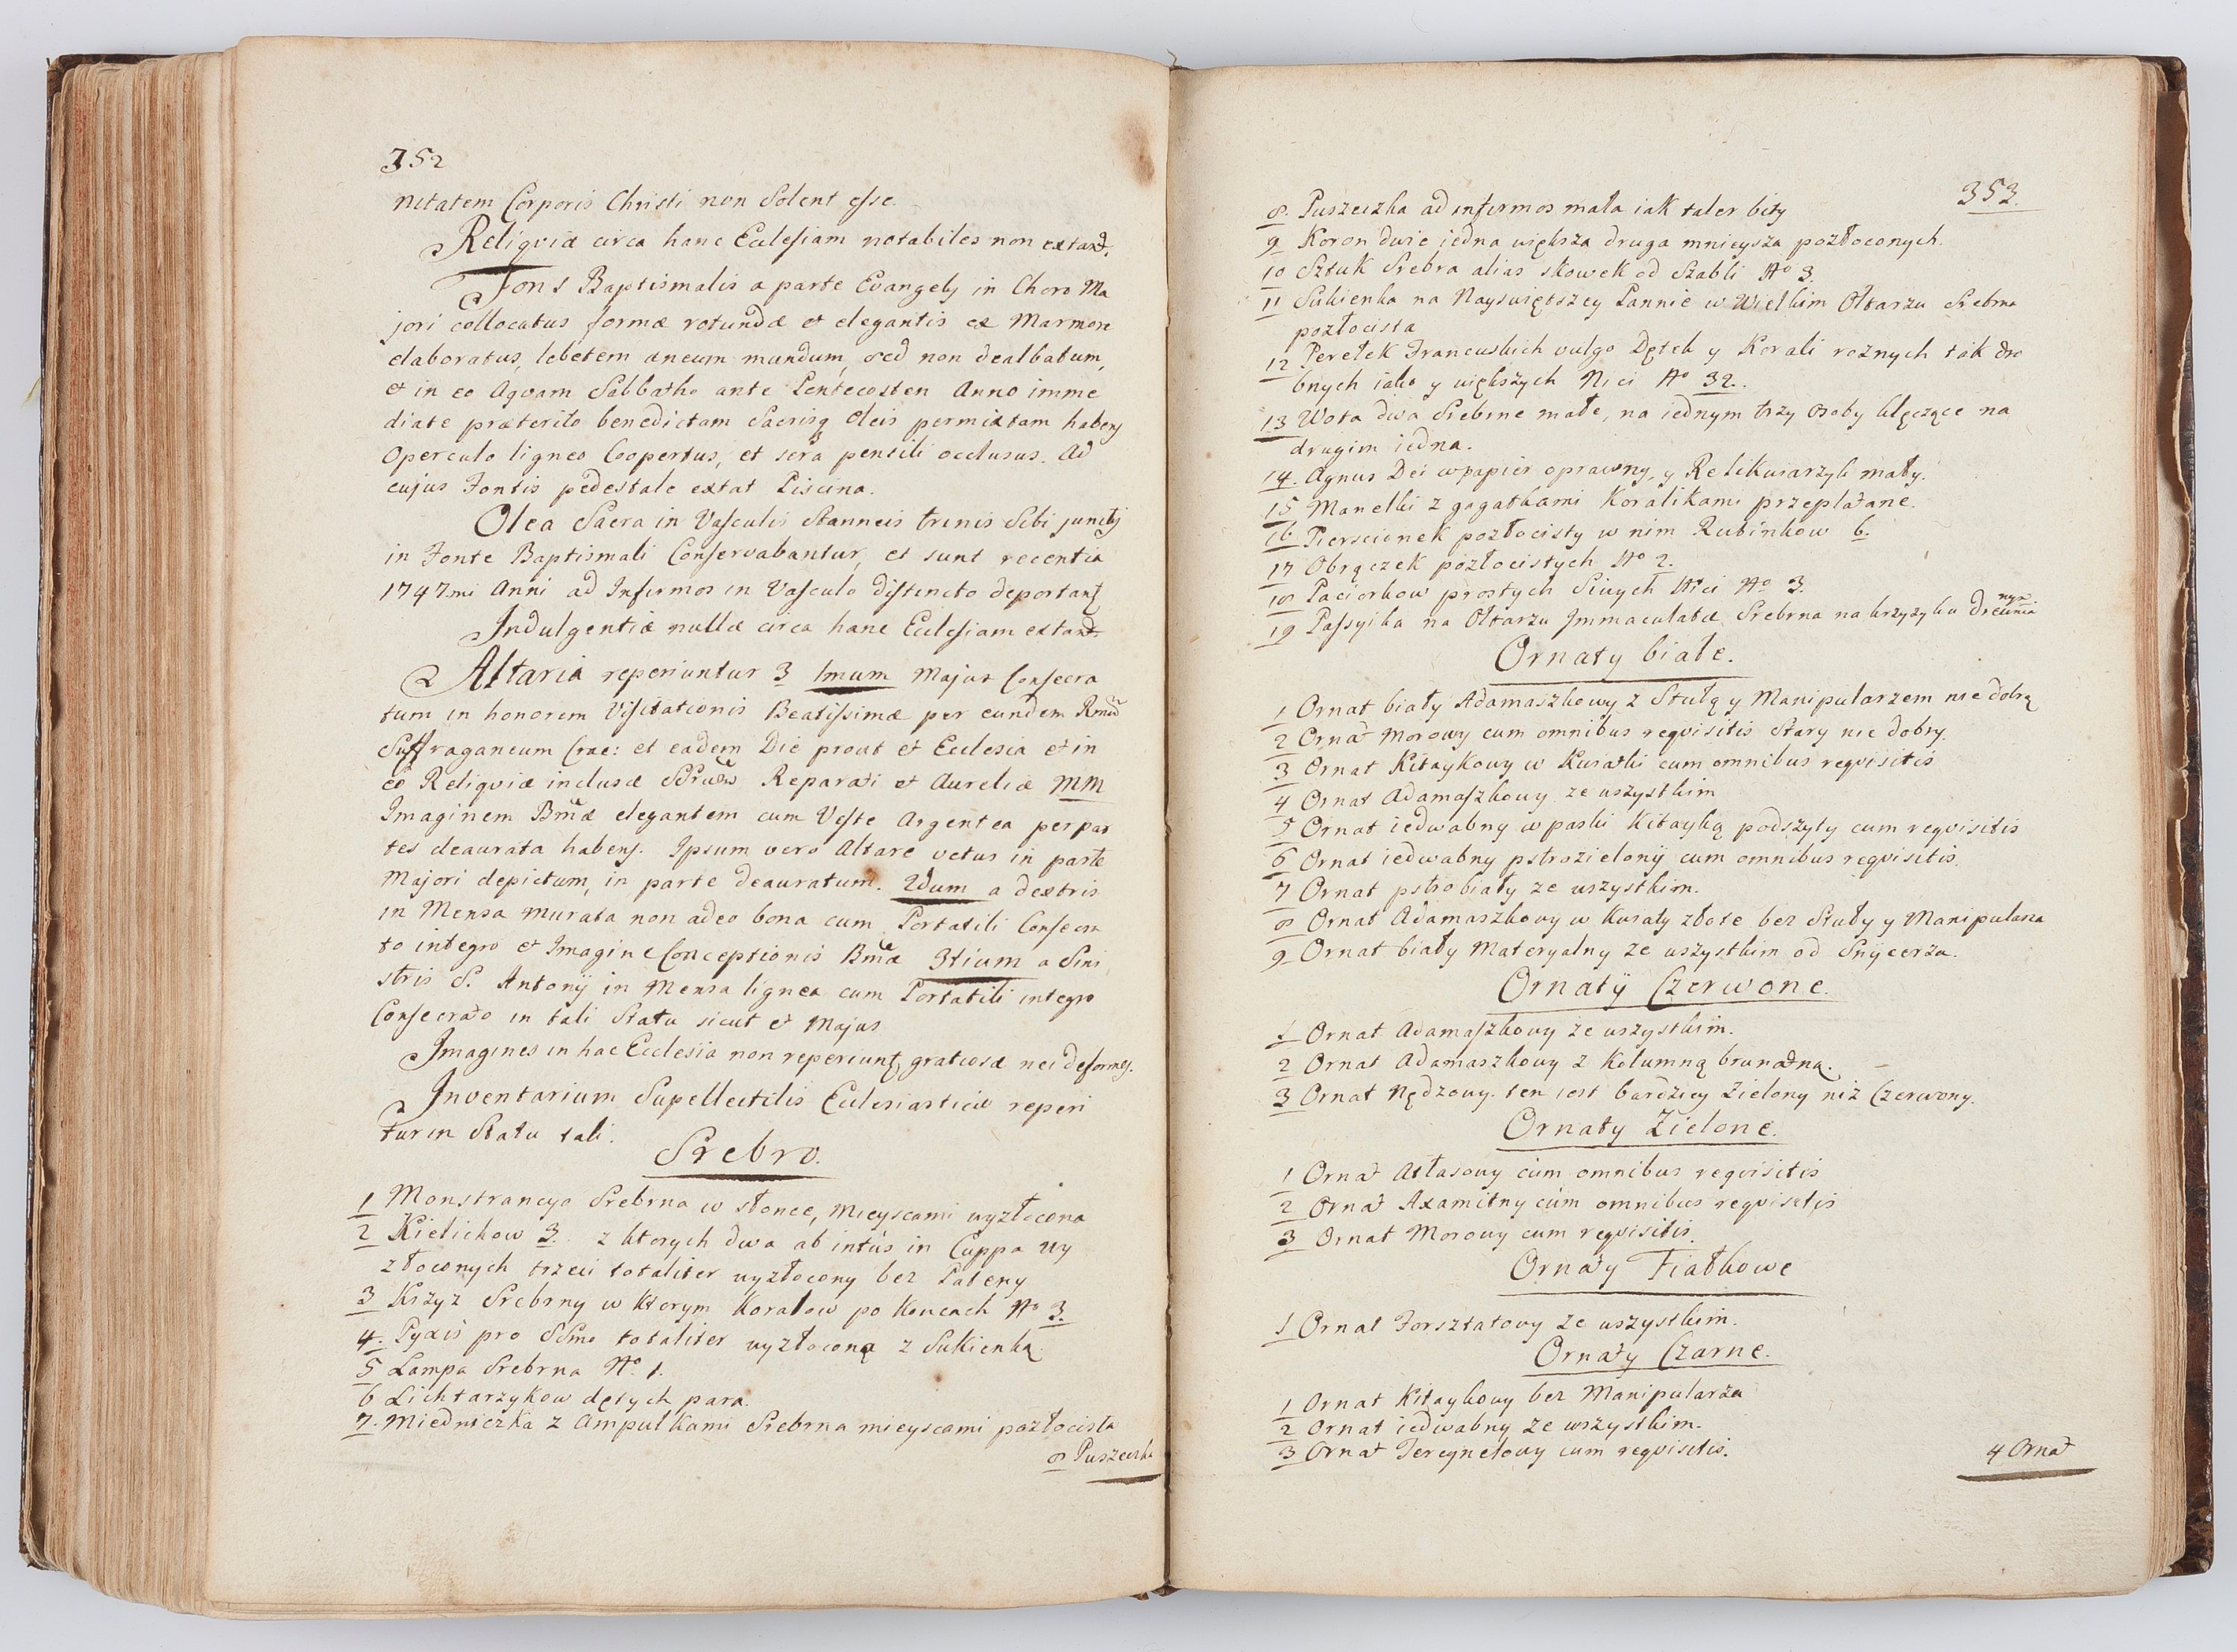 352
nitatem Corporis Christi non Solent esse.
Reliquiæ circa hanc Ecclesiam notabiles non extant.
Fons Baptismalis a parte Evangely in Choro Ma
jori collocatus formæ rotundæ et elegantis ex Marmore
elaboratus, lebetem æneum mundum, sed non dealbatum,
et in eo Aquam Sabbatho ante Pentecosten Anno imme
diate præterito benedictam Sacrisq Oleis permixtam habens
Operculo ligneo Coopertus, et sera pensili occlusus. Ad
cujus Fontis pedestale extat Piscina.
Olea Sacra in Vasculis Stanneis trinis Sibi junctis
in Fonte Baptismali Conservabantur, et sunt recentia
1747mi Anni ad Infirmos in Vasculo distincto deportant
Indulgentiæ nullæ circa hanc Ecclesiam extant
Altaria reperiuntur 3 1mum Majus Consecra
tum in honorem Visitationis Beatissimæ per eundem Rmũ
Suffraganeum Crac: et eadem Die prout et Ecclesia et in
eo Reliquiæ inclusæ Reparati et Aureliæ MM
Imaginem Bmæ elegantem cum Veste Argentea per par
tes deaurata habens. Ipsum vero Altare vetus in parte
Majori depictum, in parte deauratum. 2dum a dextris
in Mensa murata non adeo bona cum Portatili Consecra
to integro et Imagine Conceptionis Bmæ 3tium a Sini
stris S. Antonij in Mensa lignea cum Portatili integro
Consecrato in tali Statu sicut et Majus
Imagines in hac Ecclesia non reperiunt gratiosæ nec deformes.
Inventarium Supellectilis Ecclesiasticæ reperi
tur in Statu tali.
Srebro.
1 Monstrancya Srebrna w słonce, mieyscami wyzłocona
2 Kielichow 3. z ktorych dwa ab intus in Cuppa wy
złoconych trzeci totaliter wyzłocony bez Pateny
3 Krzyz Srebrny w ktorym Koralow po Koncach No 3.
4. Pyxis pro SSmo totaliter wyzłocona z Sukienką.
5 Lampa Srebrna No. 1.
6 Lichtarzykow dętych para.
7. Miedniczka z Ampułkami Srebrna mieyscami pozłocista
8 Puszeczka
353.
8. Puszeczka ad infirmos mała iak taler bity
9 Koron dwie iedna większa druga mnieysza pozłoconych.
10 Sztuk Srebra alias skowek od Szabli No 3.
11 Sukienka na Nayswiętszey Pannie w Wielkim Ołtarzu Srebrna
pozłocista
12. Perełek Francuskich vulgo Dętek y Korali roznych tak dro
bnych iako y większych Nici No 32..
13 Wota dwa Srebrne małe, na iednym trzy osoby klęczące na
drugim iedna.
14. Agnus Dei w papier oprawny, y Relikwiarzyk mały.
15 Manelki z gagatkami Koralikami przeplatane.
16 Pierscionek pozłocisty w nim Rubinkow 6.
17 Obrączek pozłocistych No 2.
18 Paciorkow prostych Siwych Nici No 3.
19 Passyika na Ołtarzu Immaculatæ Srebrna na krzyzyku drewnia
nym
Ornaty białe.
1 Ornat biały Adamaszkowy z Stułą y Manipularzem nie dobrą
2 Ornat Morowy cum omnibus requisitis Stary nie dobry.
3 Ornat Kitaykowy w Kwiatki cum omnibus requisitis
4 Ornat Adamaszkowy ze wszystkim
5 Ornat iedwabny w paski Kitayką podszyty cum requisitis
6 Ornat iedwabny pstrozielony cum omnibus requisitis.
7 Ornat pstrobiały ze wszystkim.
8 Ornat Adamaszkowy w Kwiaty złote bez Stuły y Manipularza
9 Ornat biały Materyalny ze wszystkim od Snycerza.
Ornaty Czerwone.
1 Ornat Adamaszkowy ze wszystkim.
2 Ornat Adamaszkowy z Kolumną brunatną.
3 Ornat Nędzowy. ten iest bardziey Zielony niż Czerwony.
Ornaty Zielone.
1 Ornat Atłasowy cum omnibus requisitis
2 Ornat Axamitny cum omnibus requisitis
3 Ornat Morowy cum requisitis.
Ornaty Fiałkowe
1 Ornat Forsztatowy ze wszystkim.
Ornaty Czarne.
1 Ornat Kitaykowy bez Manipularza
2 Ornat iedwabny ze wszystkim.
3 Ornat Tereynelowy cum requisitis.
4 Ornat